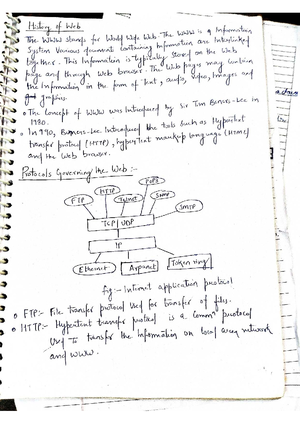 History of Web
The WWW stands for World Wide Web. The WWW is a Information
System various documents containing Information are Interlinked
together. This Information is typically stored on the Web
page and through Web browser. The Web pages may contain
the Information in the form of text, audio, video, Images and
graphics.
The Concept of WWW was Introduced by Sir Tim Berners-Lee in
1980.
In 1990, Berners-Lee Introduced the tools such as Hypertext
transfer protocol (HTTP), hypertext markup language (HTML)
and the Web browser.
Protocols Governing the Web :-
FTP
HTTP
Telnet
SNMP
SMTP
TCP/UDP
IP
Ethernet
Arpanet
Token ring
fig:- Internet application protocol
FTP:- File transfer protocol used for transfer of files.
HTTP:- Hypertext transfer protocol is a Commn protocol
Used to transfer the Information on local area network
and WWW.